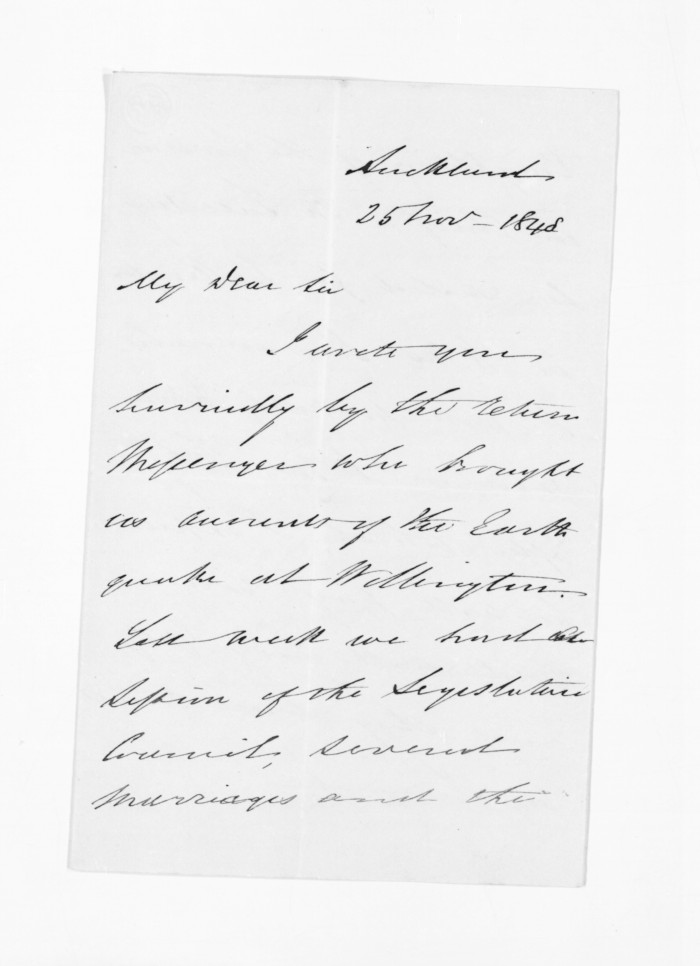 Auckland
25 Nov - 1848
My Dear Sir
I wrote you
hurriedly by the return
Messenger who brought
us accounts of the Earth
quake at Wellington.
Last week we had a
Session of the Legislative
Council, several
marriages and the